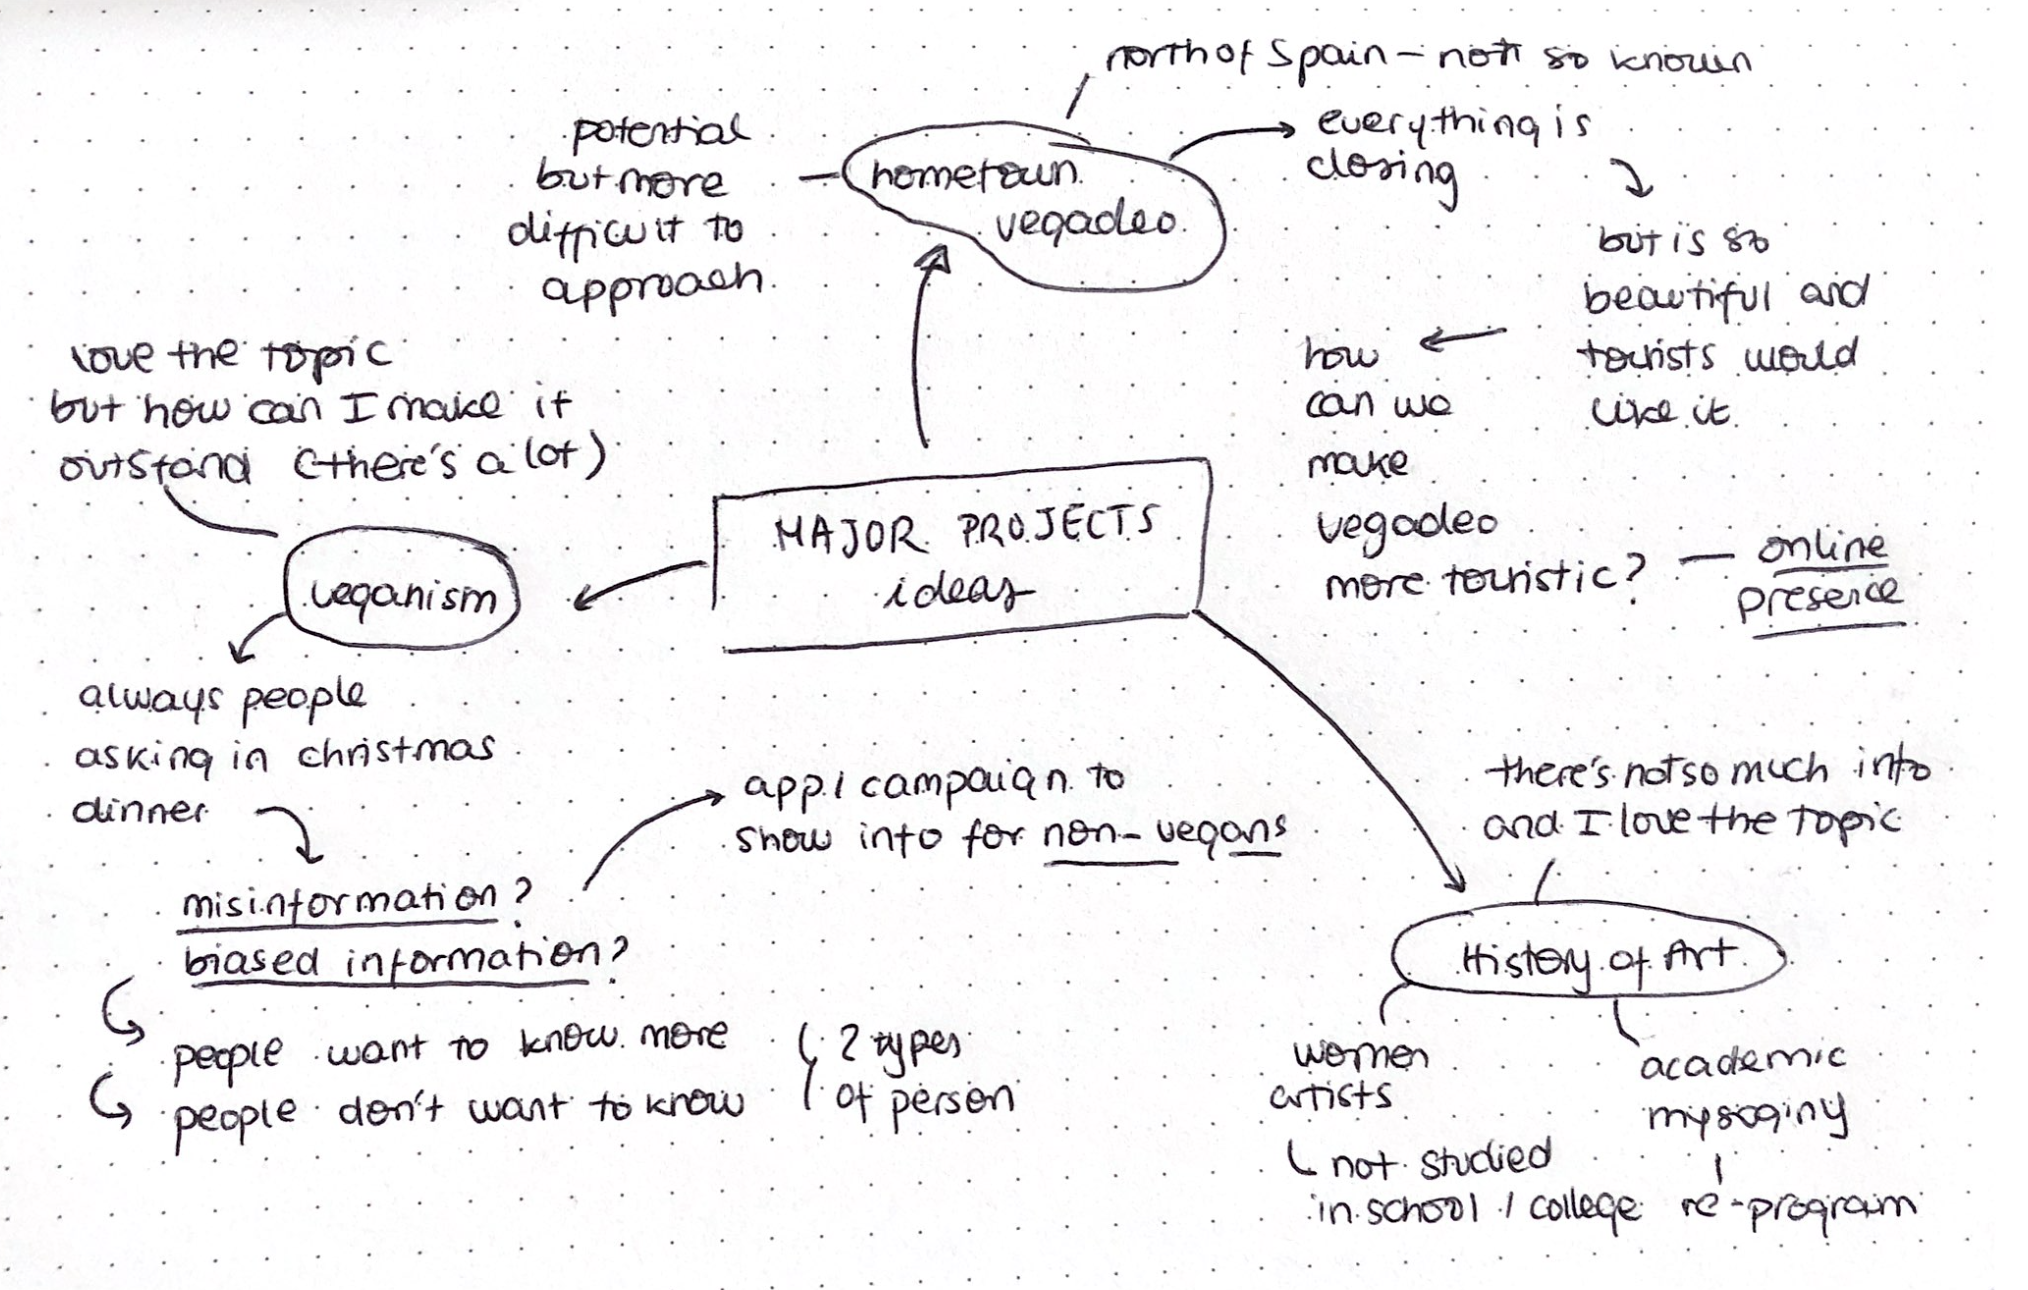 north of Spain – not so known
everything is
closing
potential
but more
difficult to
approach
hometown
vegadeo
but is so
beautiful and
tourists would
like it
how
can we
make
vegadeo
more touristic?
online
presence
love the topic
but how can I make it
outstand (there's a lot)
MAJOR PROJECTS
ideas
veganism
always people
asking in christmas
dinner
app / campaign to
show info for non-vegans
misinformation?
biased information?
people want to know more
people don't want to know
2 types
of person
there's not so much info
and I love the topic
History of Art
women
artists
not studied
in school / college
academic
mysoginy
re-program